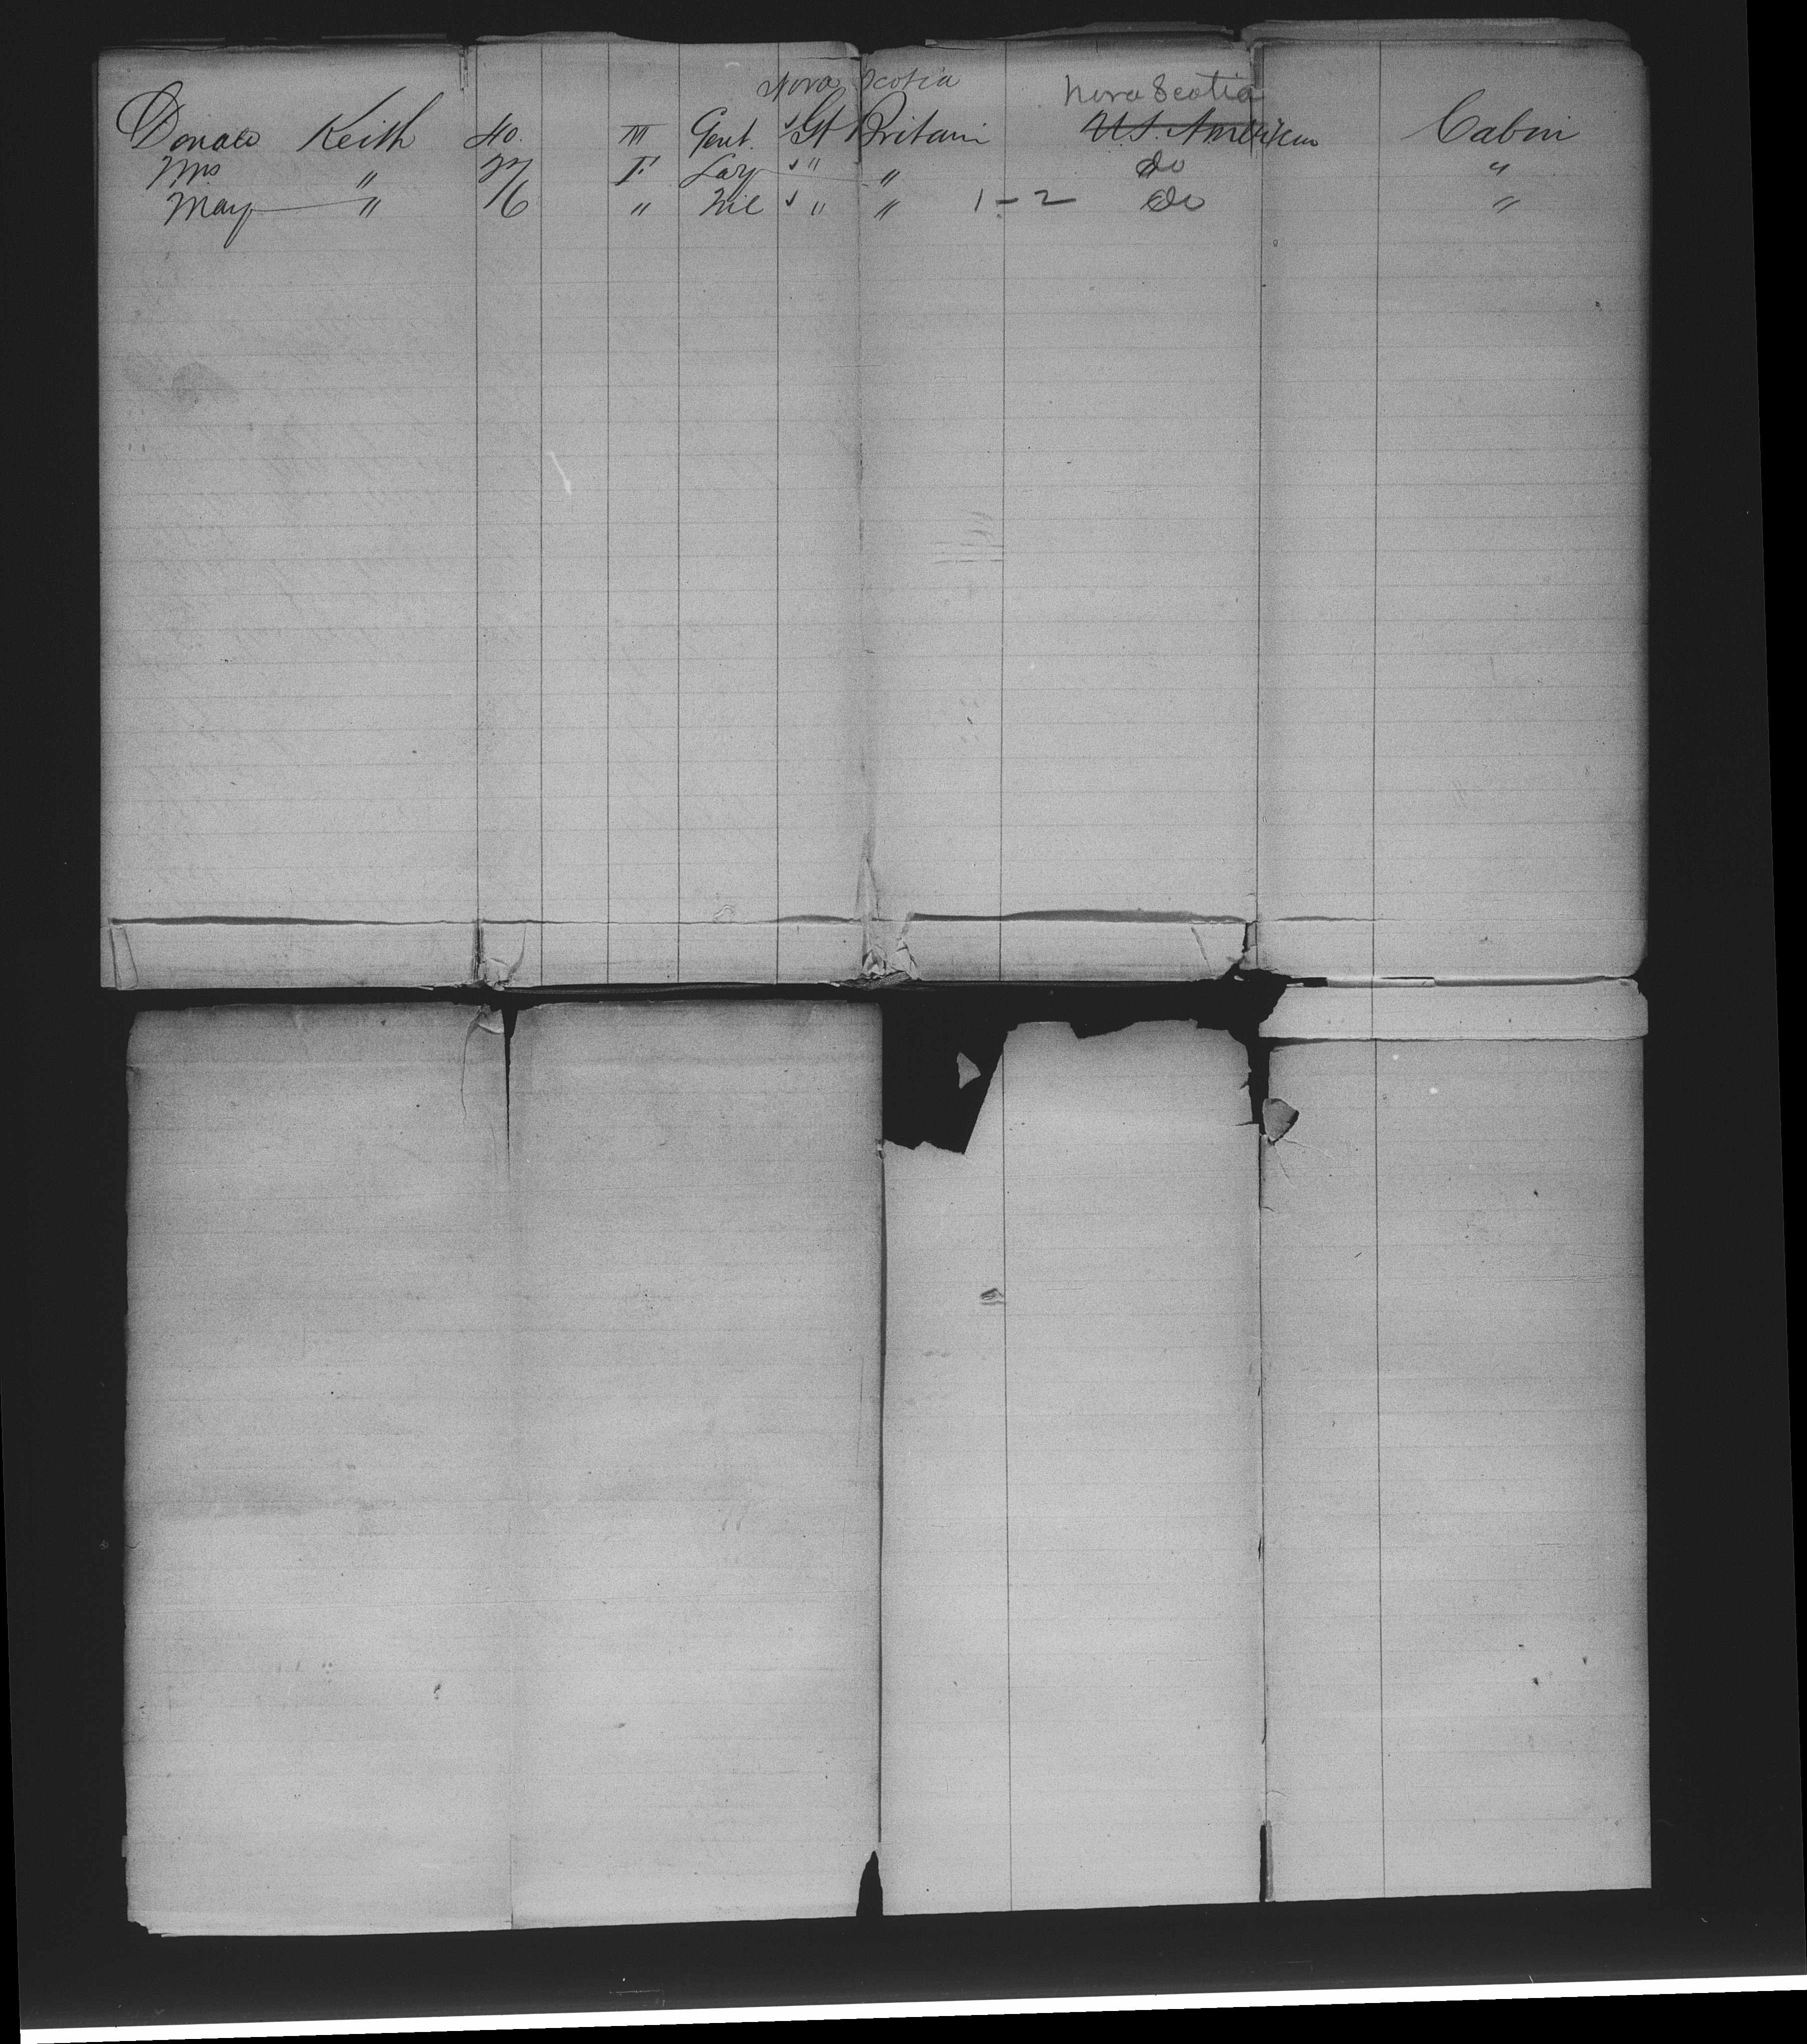 Nova Scotia Nova Scotia
Donald Keith 40. M Gent. Gt Britain U.S. American Cabin
Mrs " F Lady " " do "
May " 16 " Nil " " 1-2 do "